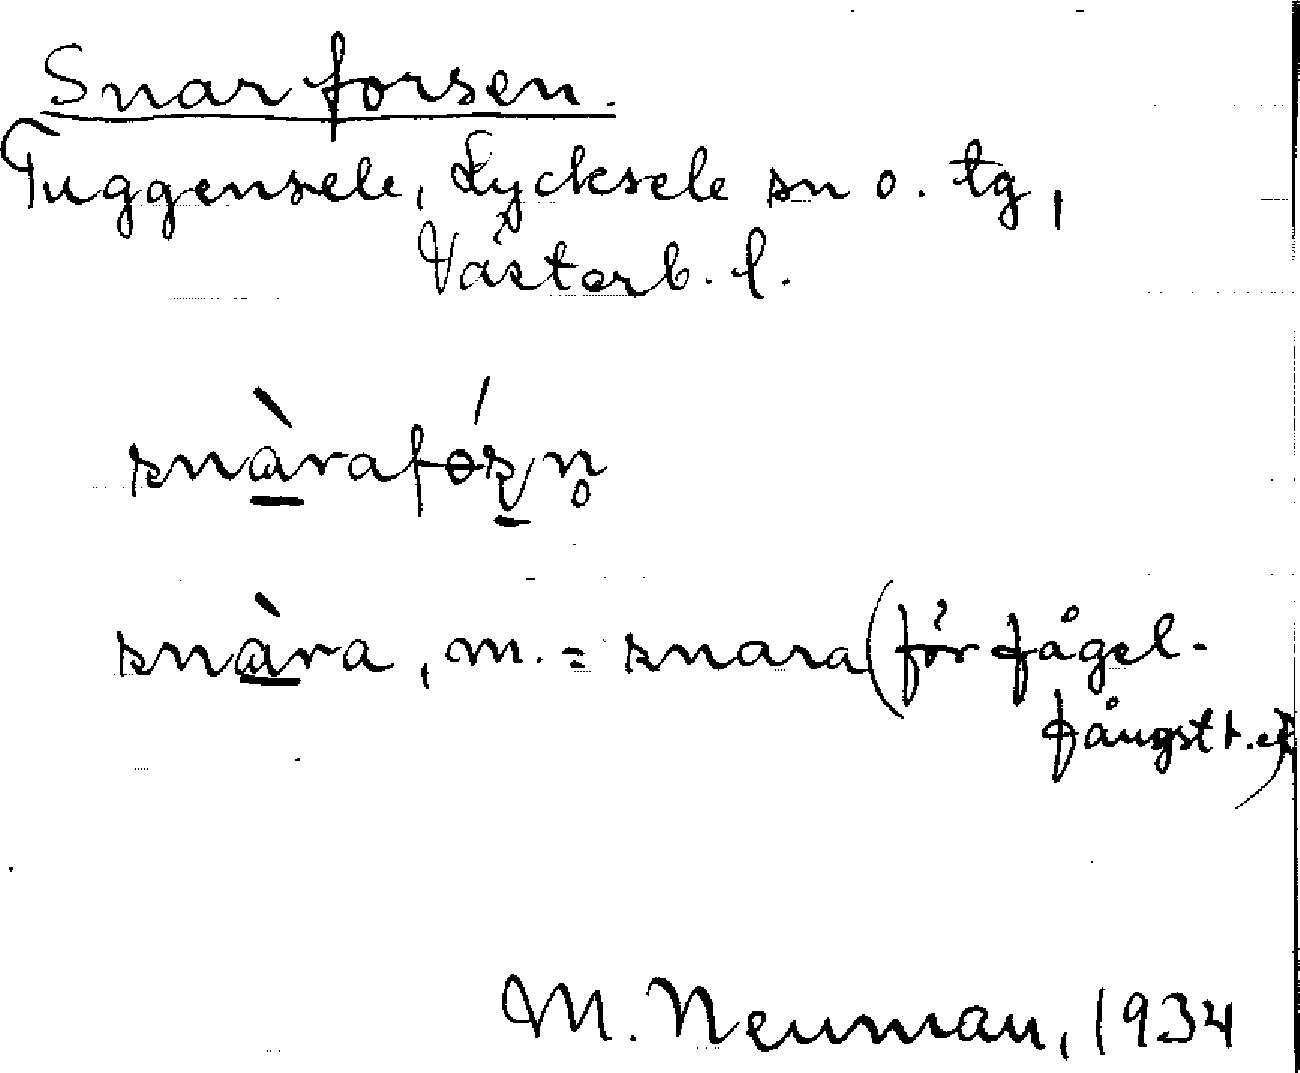 Snarforsen.
Tuggensele, Lycksele sn o. tg,
Västerb. l.
snàrafɵ́ʂn̥
snàra, m. = snara (för fågel-
fångst t. ex)
M. Neuman, 1934